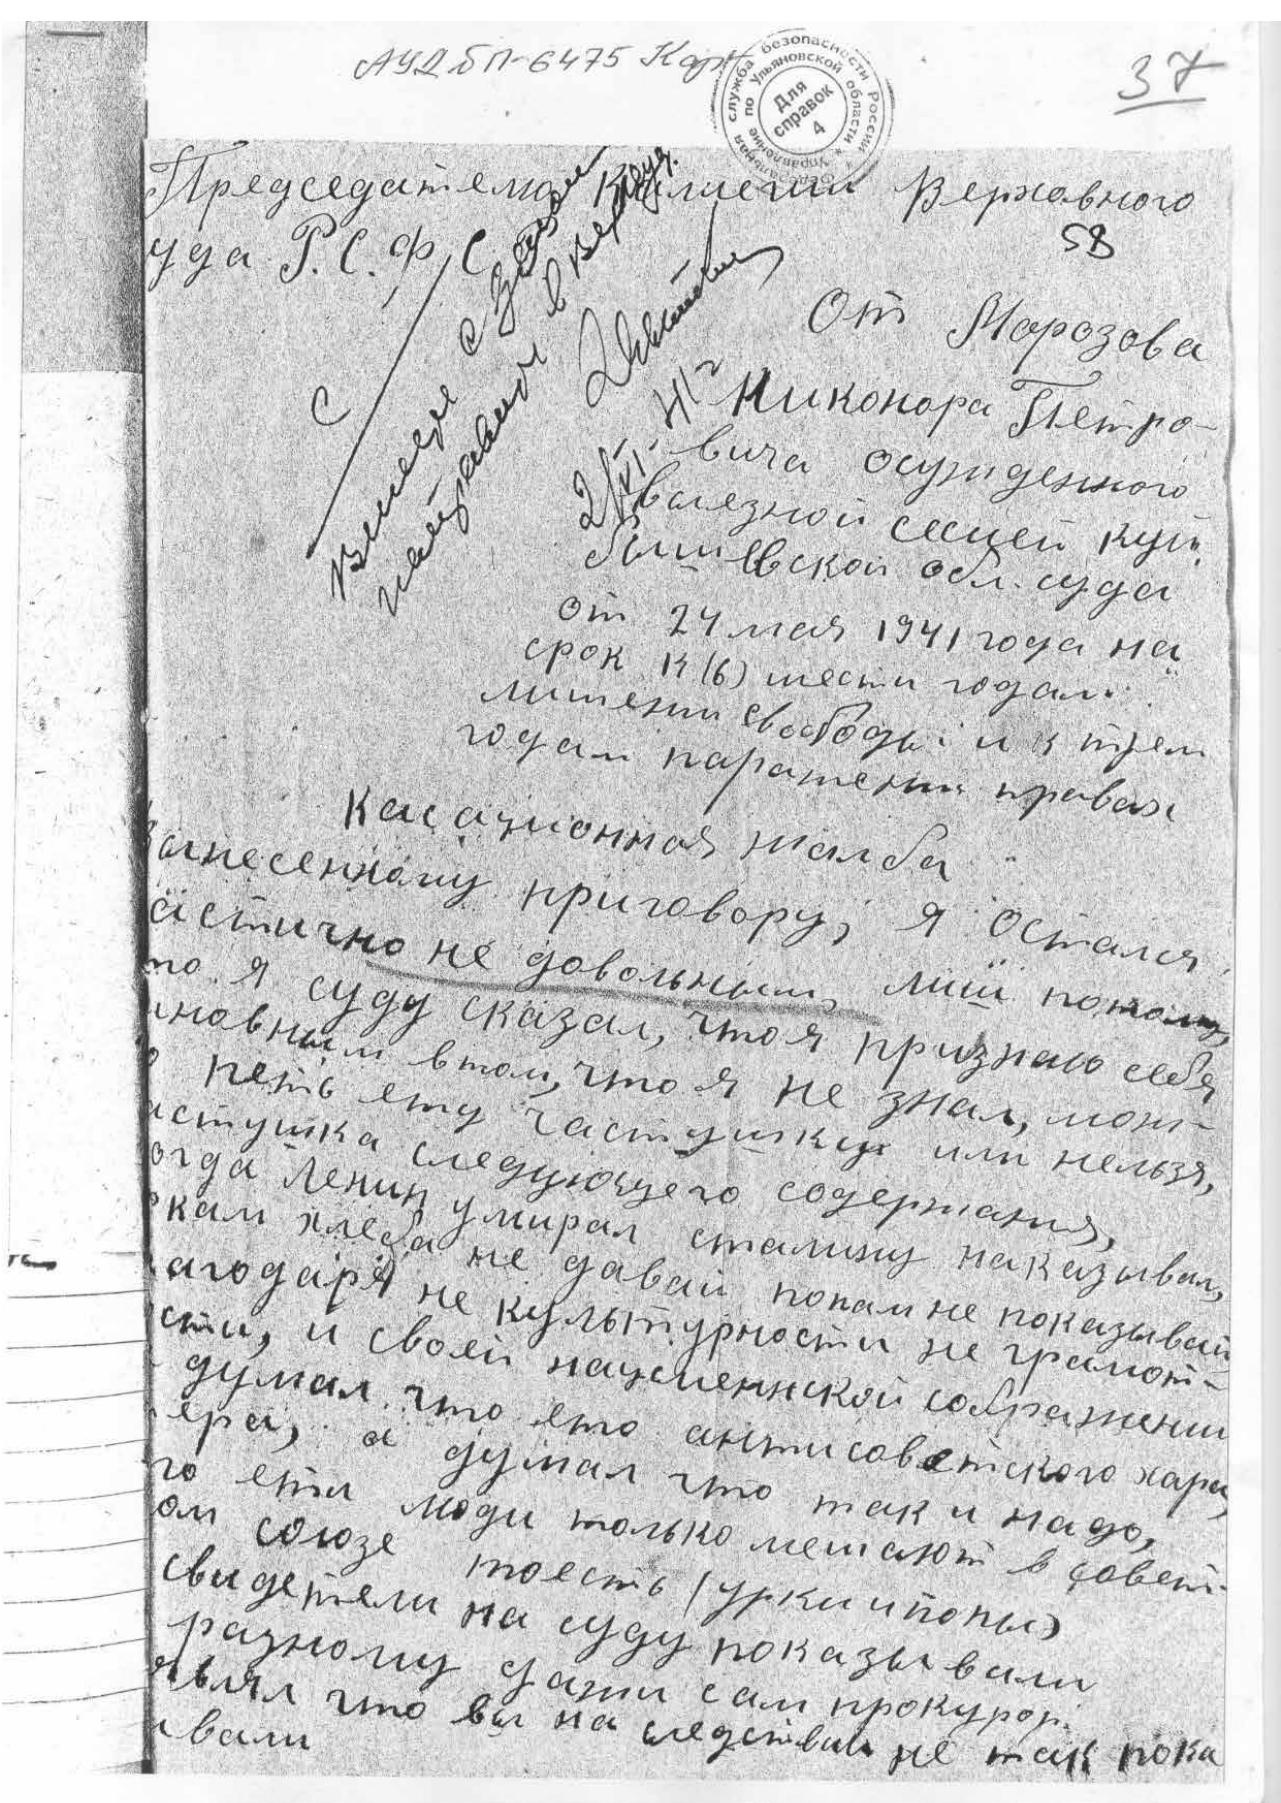 АУДБП-6475 Корж
Федеральная служба безопасности России
Управление по Ульяновской области
Для
справок
4
37
Председателю Коллегии Верховного
уда Р.С.Ф.С
58
От Морозова
Никонора Петро-
вича осужденного
выезной сессией куй
бышевской обл. суда
от 24 мая 1941 года на
срок к (6) шести годам
лишении свободы и к трем
годам паражении правах
с
направил в Верхсуд.
2/VI-41г
Касационная жалба
вынесенному приговору, я остался
астично не довольным, лиш потому,
то я суду сказал, что я признаю себя
иновным втом, что я не знал, мож-
о петь ету частушку или нельзя,
астушка следующего содержания,
огда Ленин умирал сталину наказывал,
ркам хлеба не давай попам не показывай
лагодаря не культурности не грамот-
сти, и своей наусменнской сображении
думал что ето антисоветского хара
ера, а думал что так и надо,
то ети люди только мешают в совет-
ом союзе тоесть (урки и попы)
свидетели на суду показывали
разному дажи сам прокурор
являл что вы на следствии не так пока
ывали